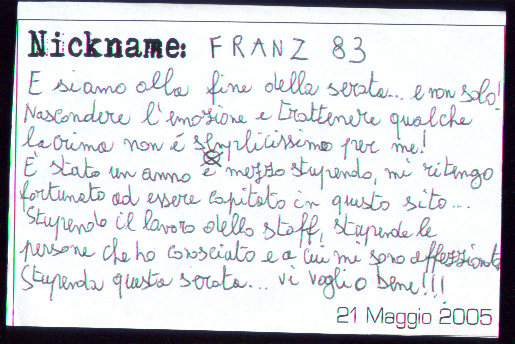 Nickname: FRANZ 83
E siamo alla fine della serata... e non solo!
Nascondere l'emozione e trattenere qualche
lacrima non é semplicissimo per me!
E stato un anno e mezzo stupendo, mi ritengo
fortunato ad essere capitato in questo sito...
Stupendo il lavoro dello staff, stupende le
persone che ho conosciuto e a cui mi sono affezionato
Stupenda questa serata... vi voglio bene!!!
21 Maggio 2005